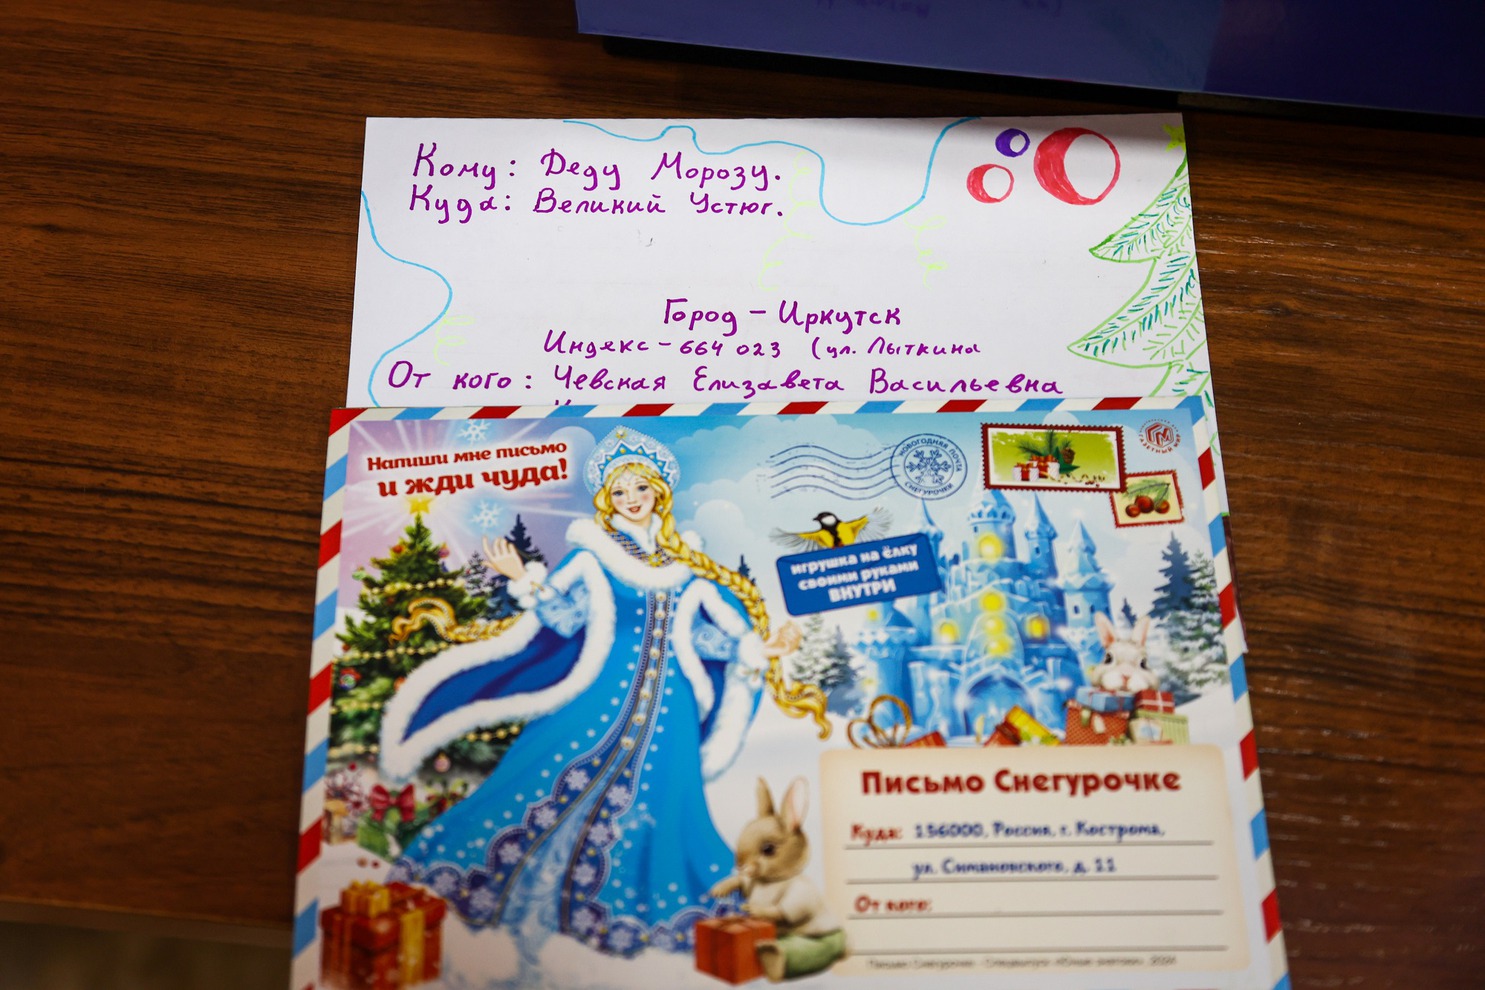 Кому: Деду Морозу.
Куда: Великий Устюг.
Город - Иркутск
Индекс - 664 023 (ул. Лыткина
От кого: Чевская Елизавета Васильевна
Напиши мне письмо
и жди чуда!
НОВОГОДНЯЯ ПОЧТА
СНЕГУРОЧКИ
игрушка на ёлку
своими руками
ВНУТРИ
Письмо Снегурочке
Куда: 156000, Россия, г. Кострома,
ул. Симановского, д. 11
От кого: